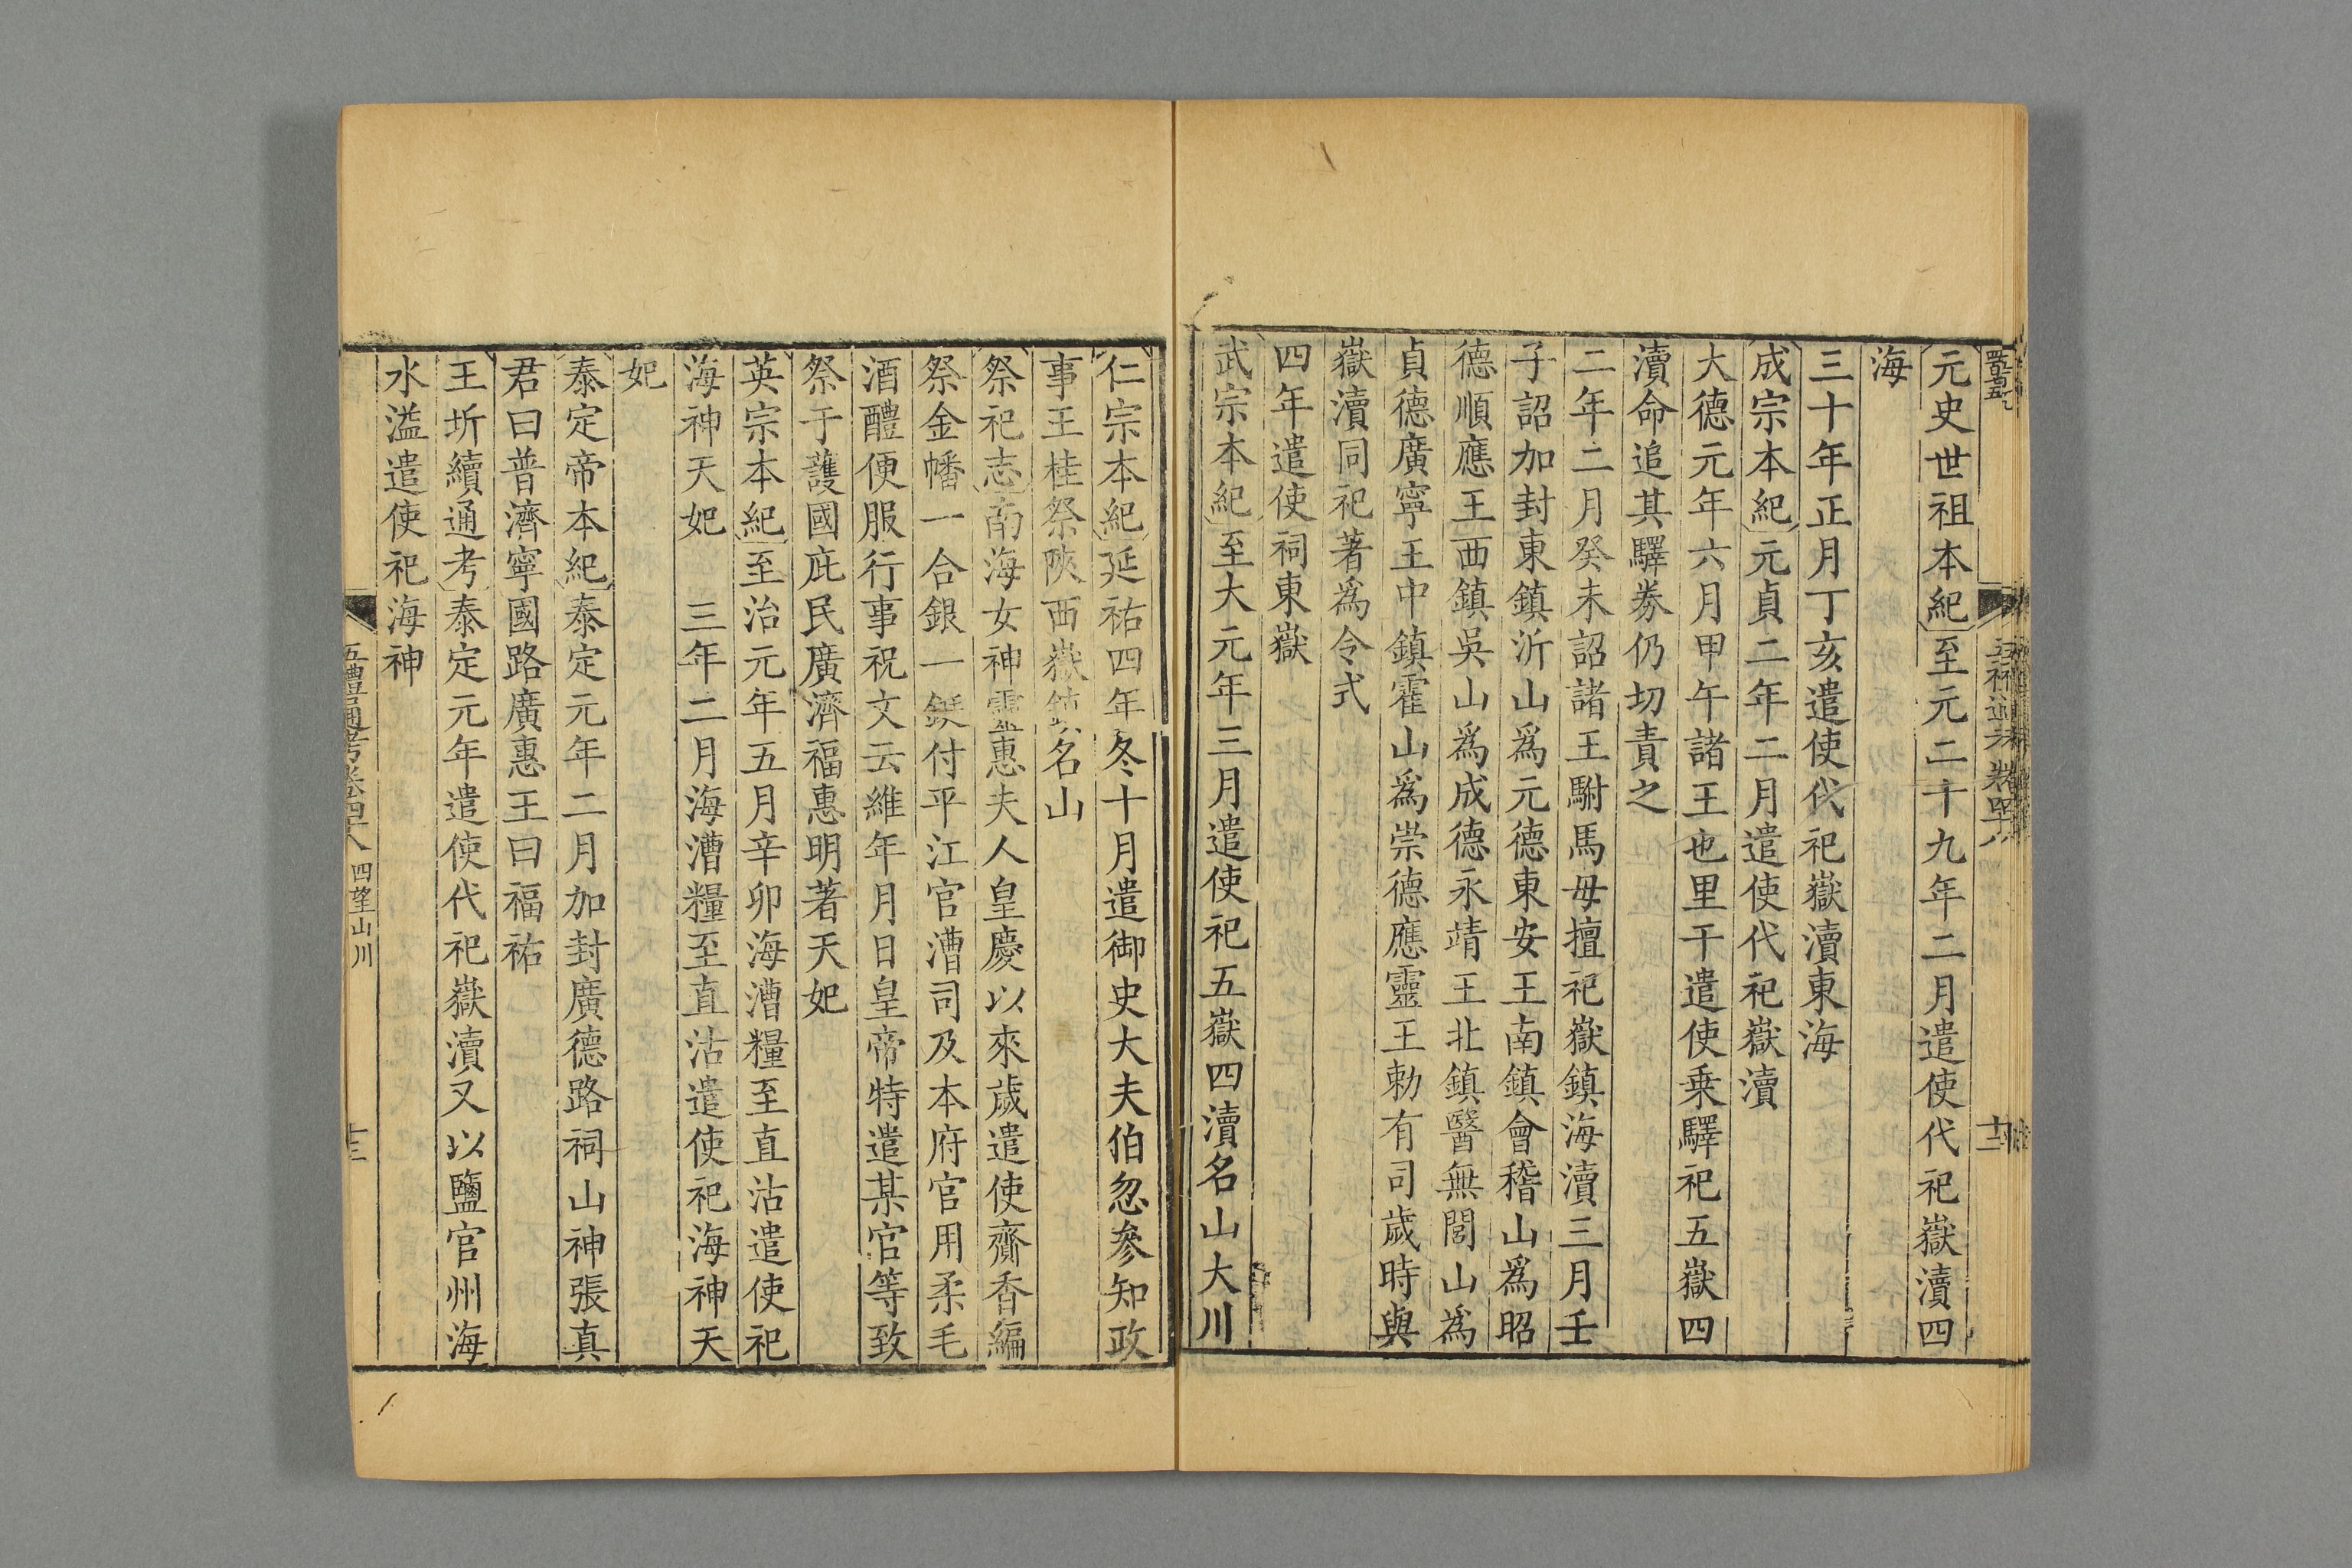 元史世祖本紀至元二十九年二月遣使代祀嶽瀆四
海
三十年正月丁亥遣使代祀嶽瀆東海
成宗本紀元貞二年二月遣使代祀嶽瀆
大德元年六月甲午諸王也里干遣使乗驛祀五嶽四
瀆命追其驛券仍切責之
二年二月癸未詔諸王駙馬毋擅祀嶽鎮海瀆三月壬
子詔加封東鎮沂山爲元德東安王南鎮會稽山爲昭
德順應王西鎮吳山爲成德永靖王北鎮醫無閭山爲
貞德廣寧王中鎮霍山爲崇德應靈王勅有司歲時與
嶽瀆同祀著爲令式
四年遣使祠東嶽
武宗本紀至大元年三月遣使祀五嶽四瀆名山大川
仁宗本紀延祐四年冬十月遣御史大夫伯忽參知政
事王桂祭陜西嶽鎮名山
祭祀志南海女神靈惠夫人皇慶以來歲遣使齎香編
祭金幡一合銀一鋌付平江官漕司及本府官用柔毛
酒醴便服行事祝文云維年月日皇帝特遣某官等致
祭于護國庇民廣濟福惠明著天妃
英宗本紀至治元年五月辛卯海漕糧至直沽遣使祀
海神天妃 三年二月海漕糧至直沽遣使祀海神天
妃
泰定帝本紀泰定元年二月加封廣德路祠山神張真
君曰普濟寧國路廣惠王曰福祐
王圻續通考泰定元年遣使代祀嶽瀆又以鹽官州海
水溢遣使祀海神
五禮通考卷四十八 四望山川
十三